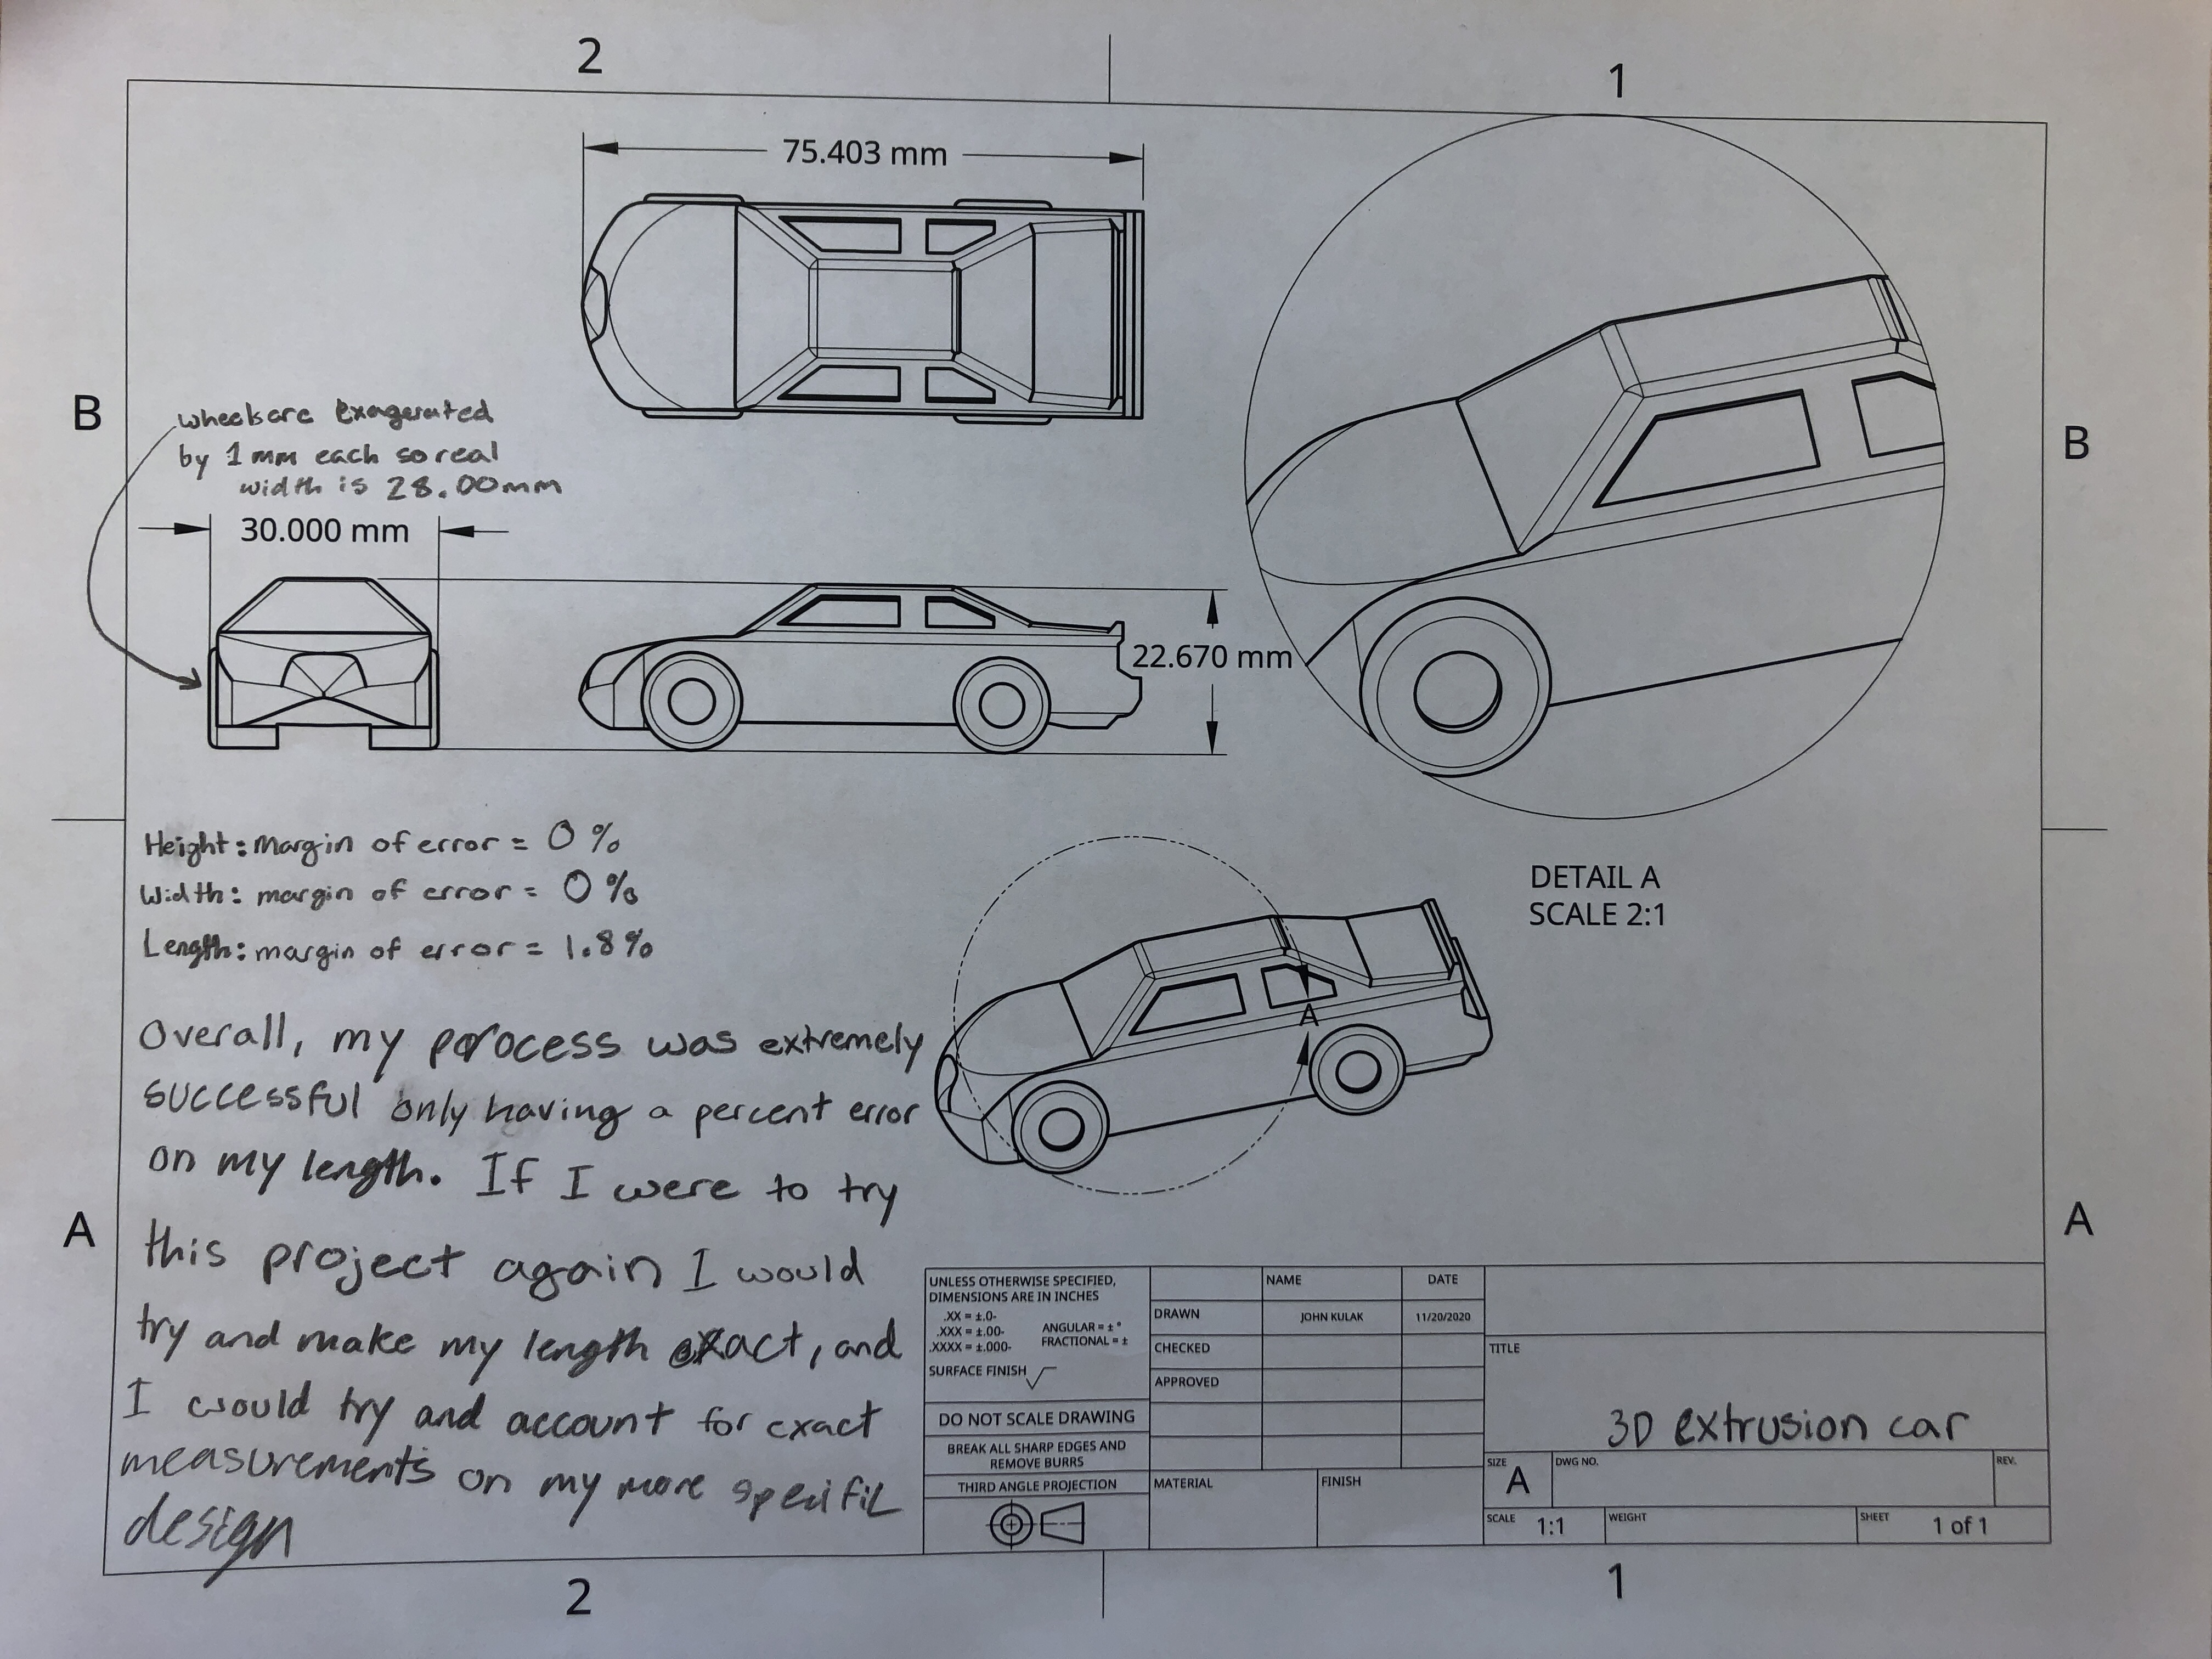 2
1
75.403 mm
B
B
wheels are exagerated
by 1 mm each so real
width is 28.00mm
30.000 mm
22.670 mm
Height: margin of error = 0 %
Width: margin of error = 0 %
Length: margin of error = 1.8%
DETAIL A
SCALE 2:1
A
Overall, my process was extremely
successful only having a percent error
on my length. If I were to try
this project again I would
try and make my length exact, and
I would try and account for exact
measurements on my more specific
design
A
A
UNLESS OTHERWISE SPECIFIED,
DIMENSIONS ARE IN INCHES
.XX = ±.0-
.XXX = ±.00-
.XXXX = ±.000-
ANGULAR = ± °
FRACTIONAL = ±
SURFACE FINISH
DO NOT SCALE DRAWING
BREAK ALL SHARP EDGES AND
REMOVE BURRS
THIRD ANGLE PROJECTION
NAME
DATE
DRAWN
JOHN KULAK
11/20/2020
CHECKED
APPROVED
MATERIAL
FINISH
TITLE
3D extrusion car
SIZE
A
DWG NO.
REV.
SCALE
1:1
WEIGHT
SHEET
1 of 1
2
1